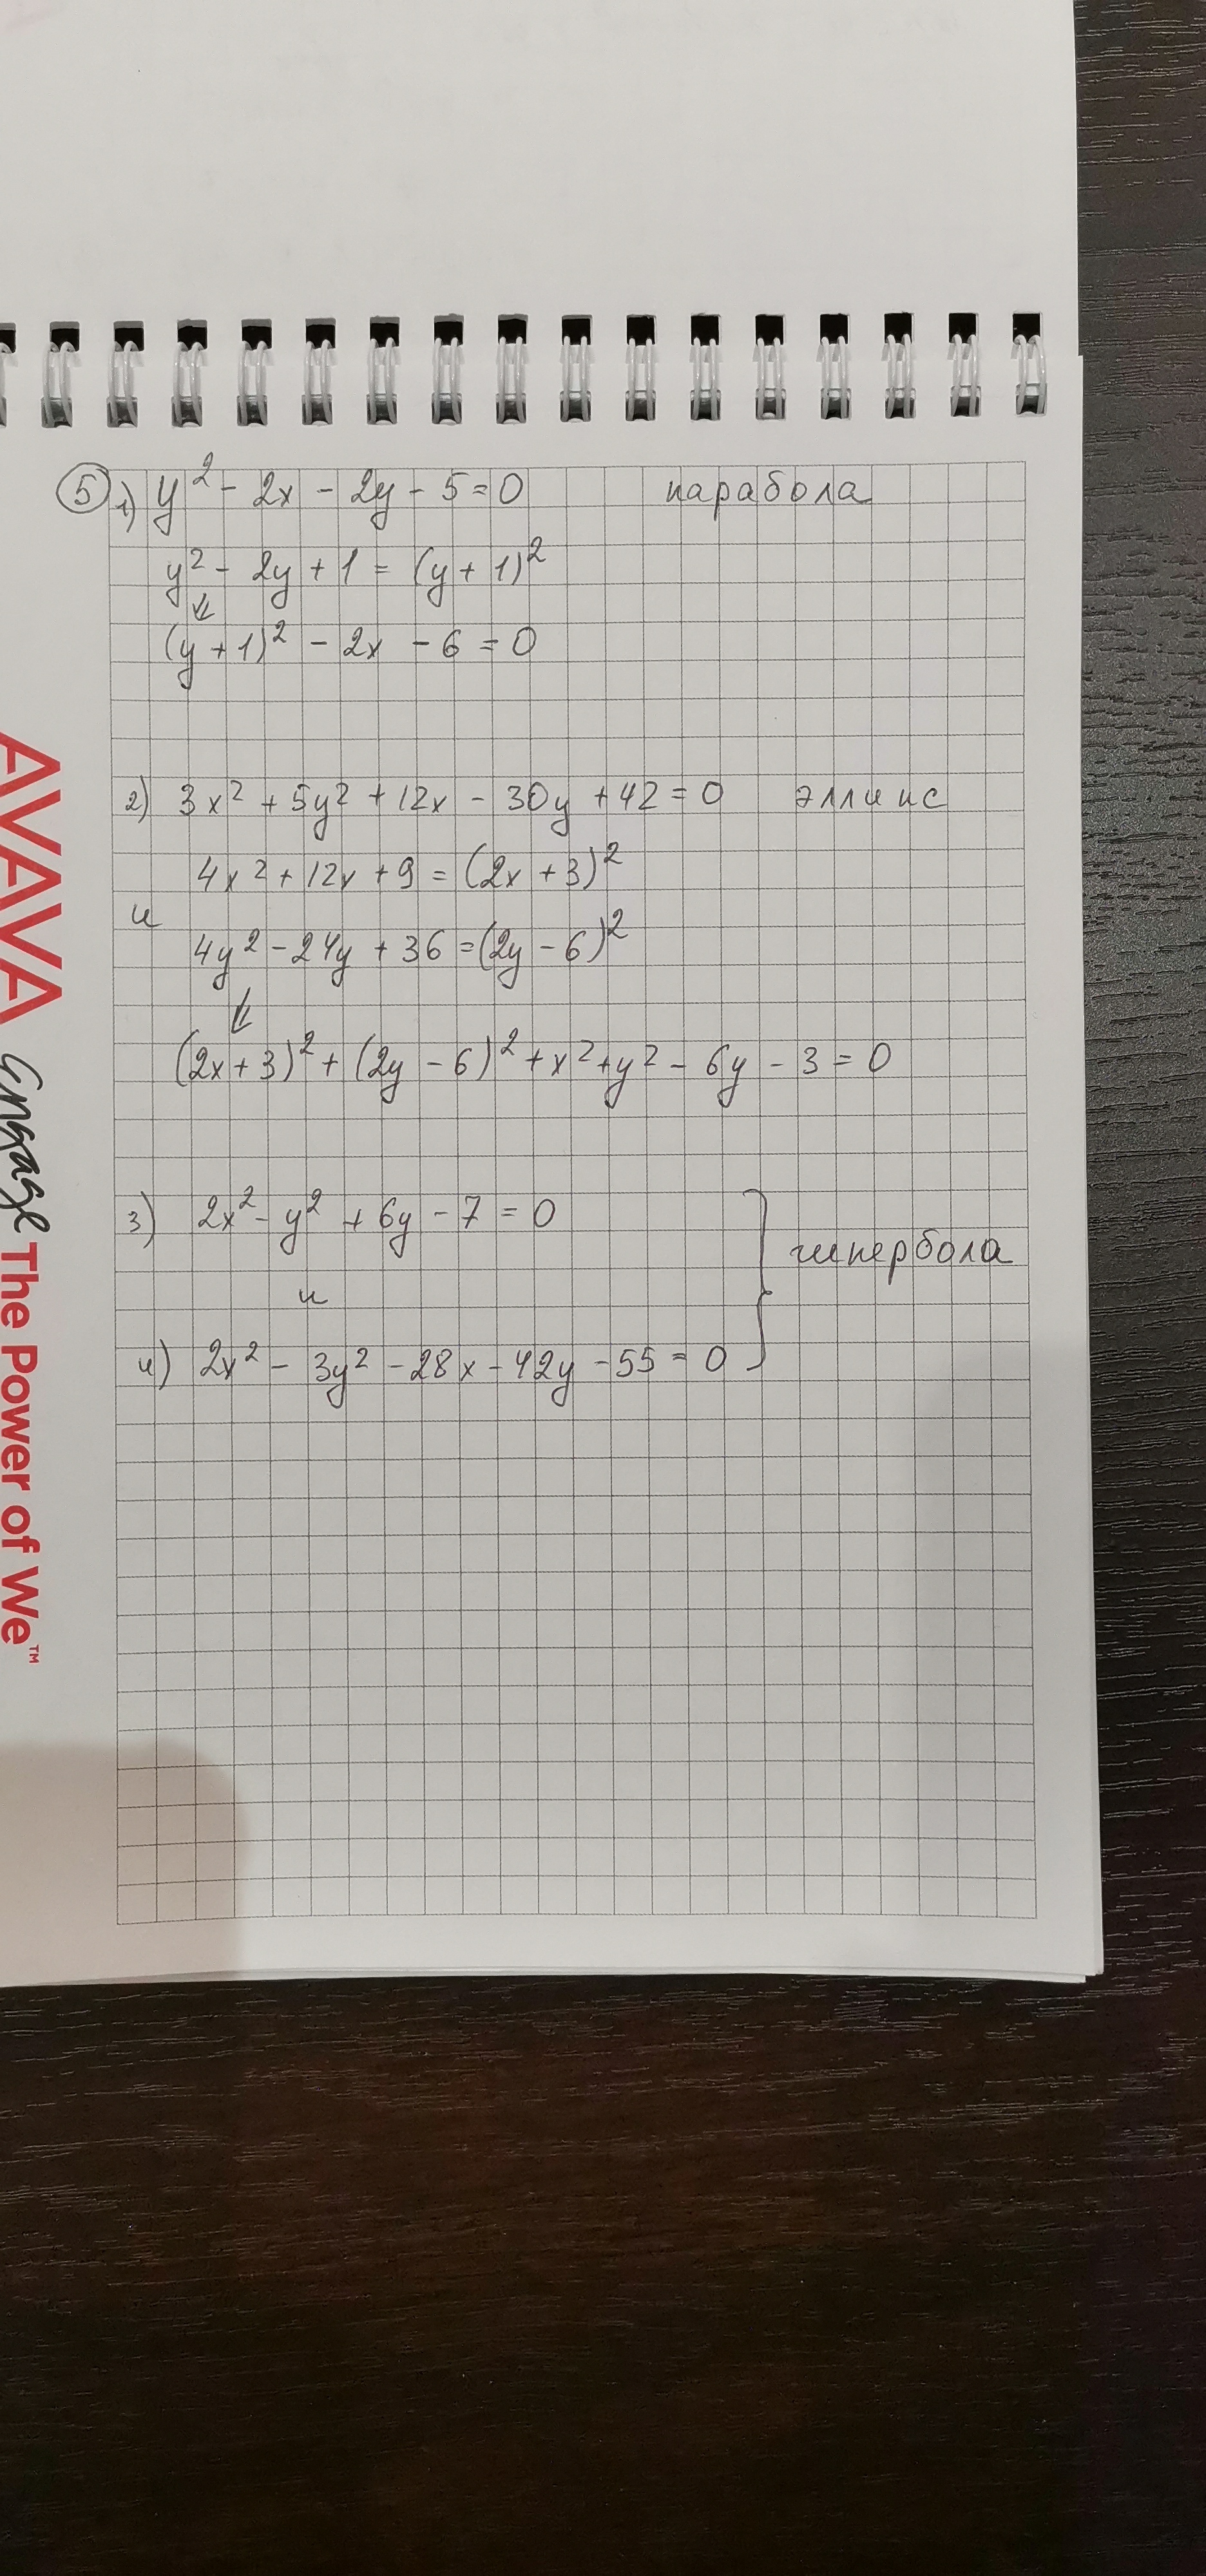 5 1) y² - 2x - 2y - 5 = 0 парабола
y² - 2y + 1 = (y + 1)²
(y + 1)² - 2x - 6 = 0
2) 3x² + 5y² + 12x - 30y + 42 = 0 эллипс
4x² + 12x + 9 = (2x + 3)²
и
4y² - 24y + 36 = (2y - 6)²
(2x + 3)² + (2y - 6)² + x² + y² - 6y - 3 = 0
3) 2x² - y² + 6y - 7 = 0
гипербола
и
4) 2x² - 3y² - 28x - 42y - 55 = 0
AVAVA
Engage The Power of We™